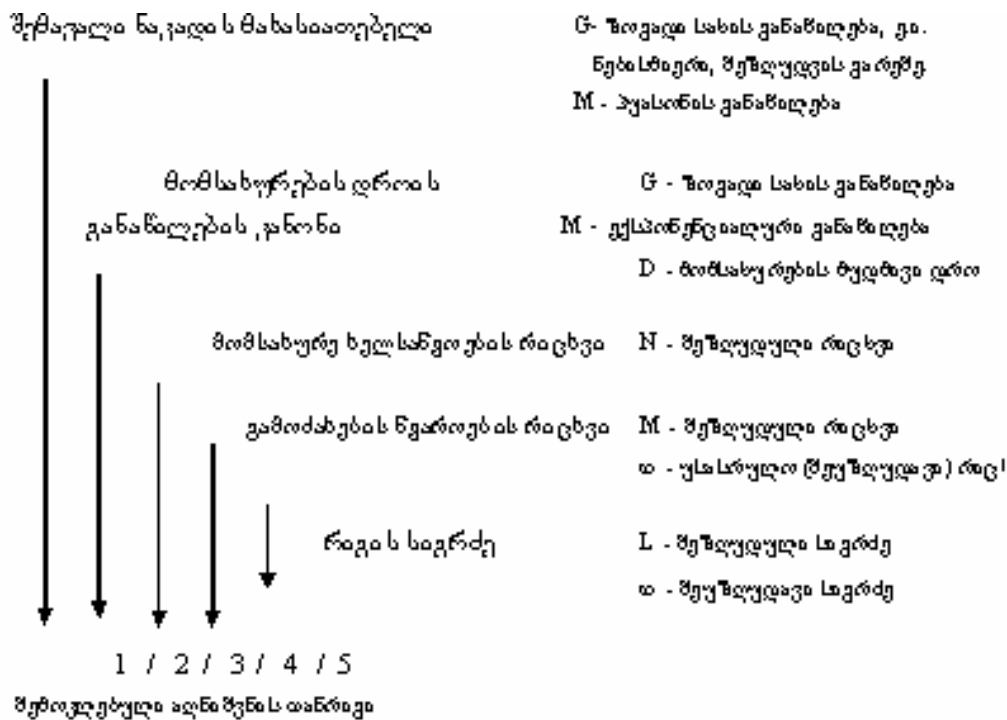 შემავალი ნაკადის მახასიათებელი
G- ზოგადი სახის განაწილება, ე.ი.
ნებისმიერი, შეზღუდვის გარეშე.
M - პუასონის განაწილება
მომსახურების დროის
განაწილების კანონი
G - ზოგადი სახის განაწილება
M - ექსპონენციალური განაწილება
D - მომსახურების მუდმივი დრო
მომსახურე ხელსაწყოების რიცხვი
N - შეზღუდული რიცხვი
გამოძახების წყაროების რიცხვი
M - შეზღუდული რიცხვი
∞ - უსასრულო (შეუზღუდავი) რიც
რიგის სიგრძე
L - შეზღუდული სიგრძე
∞ - შეუზღუდავი სიგრძე
1 / 2 / 3 / 4 / 5
შემოკლებული აღნიშვნის თანრიგი